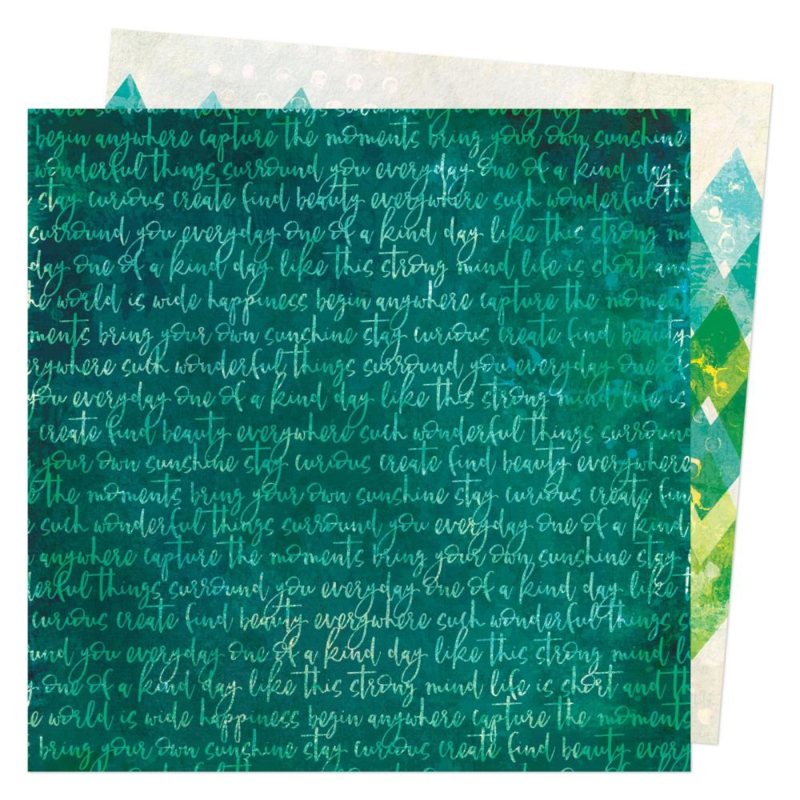 begin anywhere capture the moments bring your own sunshine
wonderful things surround you everyday one of a kind day
stay curious create find beauty everywhere such wonderful
surround you everyday one of a kind day like this strong
day one of a kind day like this strong mind life is short and
world is wide happiness begin anywhere capture the moments
bring your own sunshine stay curious create find beauty
such wonderful things surround you everyday
you everyday one of a kind day like this strong mind life is
create find beauty everywhere such wonderful things surround
your own sunshine stay curious create find beauty everywhere
the moments bring your own sunshine stay curious create
such wonderful things surround you everyday one of a kind
anywhere capture the moments bring your own sunshine stay
things surround you everyday one of a kind day like
curious create find beauty everywhere such wonderful things
you everyday one of a kind day like this strong mind
one of a kind day like this strong mind life is short and
world is wide happiness begin anywhere capture the moments
bring your own sunshine stay curious create find beauty